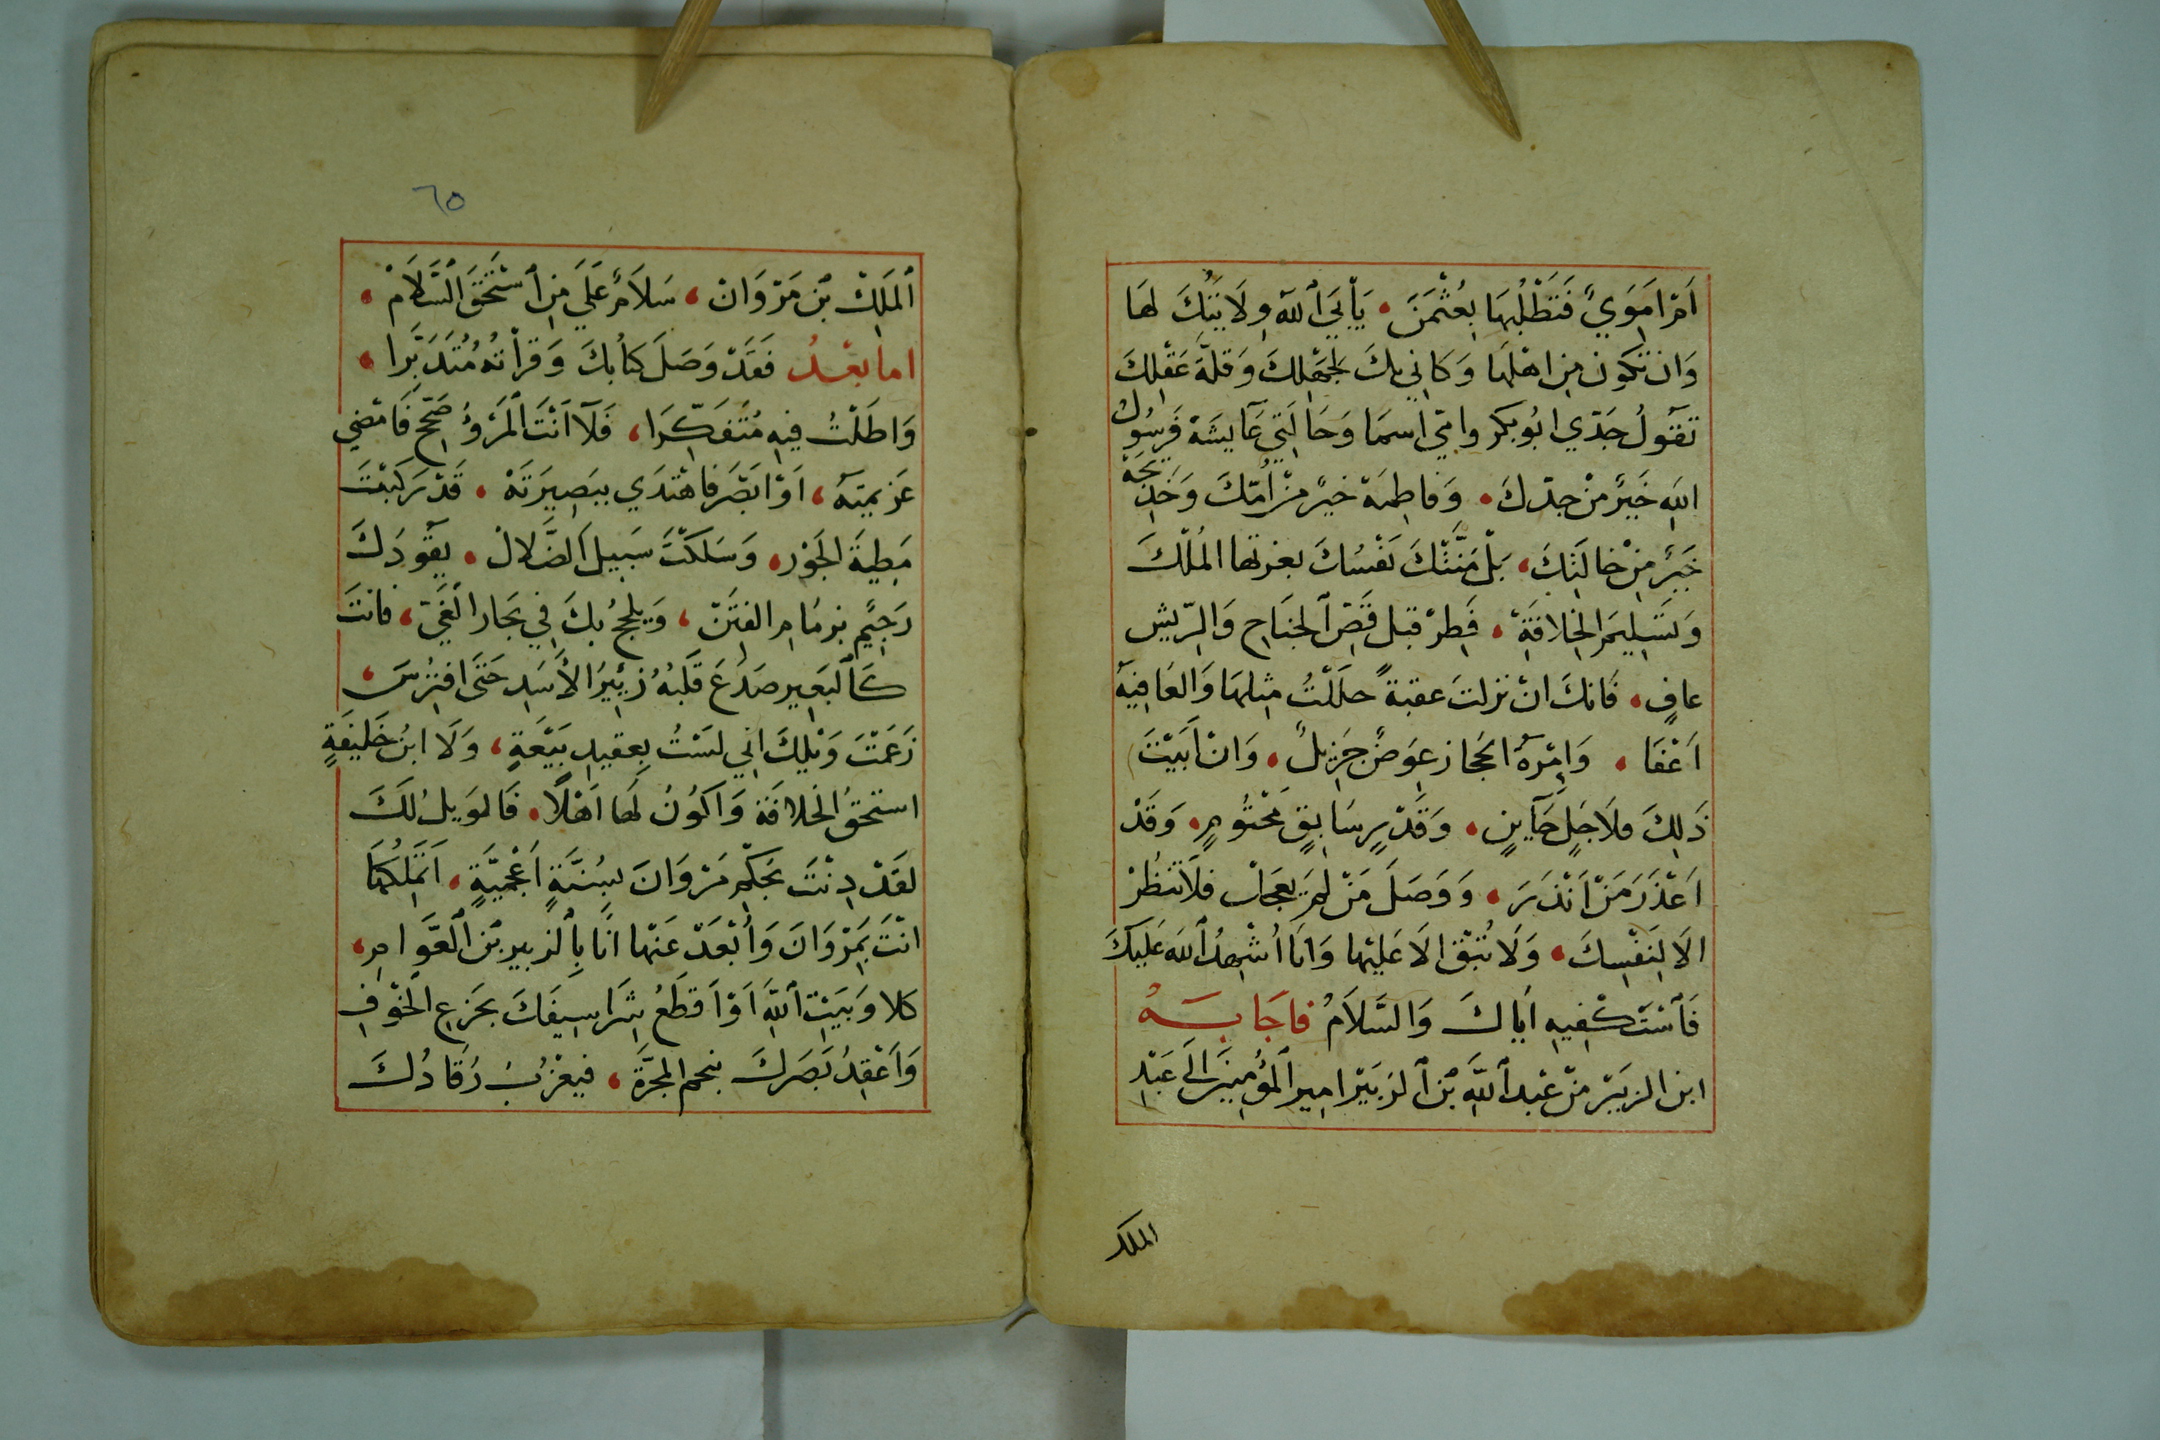 اَمْ اُمَوِيٌ فَتَطْلُبُهَا بِعُثْمٰنَ يَأْبَي ٱللّٰهُ وِلَايَتَكَ لَهَا
وَانْ تَكُونَ مِنِ اهْلِهَا وَكَانِي بِكَ لِجَهْلِكَ وَقِلَّةَ عَقْلِكَ
تَقُولُ جَدّي ابُوبَكر وامّي اسمَا وَخَالَتِي عَآيشَةْ فَرَسُولُ
اللهِ خَيرٌ مِنْ جدّكَ وَفَاطِمةْ خيرٌ مِنْ اُمّكَ وَخَدِيجَةْ
خَيرٌ مِنْ خَالَتِكَ بَلْ مَنَّتْكَ نَفْسُكَ بغرتها المُلْكَ
وَتَسْلِيمَ الخِلَافَةِ فَطِرْ قبلَ قَصِّ ٱلجَنَاحِ وَالرِّيشِ
عافٍ فَانكَ انْ نزلتَ عقبةً حلَلْتُ مِثلهَا وَالعَافِيَةُ
اَعْفَا وَاِمْرَةُ الحجَازِ عِوَضٌ جَزِيلٌ وَانْ اَبَيْتَ
ذَلِكَ فلاَجَلٍ حَآينٍ وَقَدَرٍ سَابِقٍ مَحْتُومٍ وَقَدْ
اَعْذَرَ مَنْ اَنْذَرَ وَوَصَلَ مَنْ لَمْ يَعجَلْ فلاَ تنظُرْ
الَا لِنَفْسِكَ وَلَا تُبْقِ الَا عَلَيْهَا وَانَا اُشْهِدُ ٱللهَ عَلَيكَ
فَٱسْتَكْفِيهِ ايَاكَ وَالسَّلَامُ فاَجَابَهُ
ابن الزبَيْر مِنْ عَبْد ٱللهِ بْنِ ٱلزبَيْر امِير ٱلمُؤْمِنِينَ الَى عَبْدِ
الملك
٦٥
ٱلمَلِكْ بْن مَرْوَانْ سَلاَمٌ عَلَي مَنِ ٱسْتَحَقَ ٱلسَّلَامْ
اما بعْدُ فَقَدْ وَصَلَ كتَابُكَ وَقرأتهُ مُتَدَبِّرا
وَاطَلْتُ فيهِ مُتَفَكِّرَا فَلَآ اَنْتَ المَرْؤُ صَحَّ فَامْضِي
عَزِيمتِهُ اَوْ ابَصَرَ فاهْتدَي ببَصِيرَتَهْ قَدْ رَكِبْتَ
مَطِيةَ الجَوْر وَسَلَكْتَ سَبِيلَ الضَّلَالْ يقُودَكَ
رَجِيْمٌ بزمَامِ الفِتَنْ وَيلجُ بكَ فِي بَحَار ٱلغَيّ فَانتَ
كَٱلبَعِير صَدَعَ قَلْبَهُ زئِيرُ الأَسَدِ حَتَى افتُرِسَ
زَعَمْتَ وَيْلِكَ انِي لَسْتُ بِعقِيدِ بَيْعَةٍ وَلَا ابْنُ خَلِيفَةٍ
استحقُ الخَلافَة وَاكُونُ لَها اَهْلًا فَالوَيلُ لَكَ
لقَدْ دِنْتَ بحُكْمِ مَرْوَانَ بسُنَّةٍ اَعْجَمِيَّةٍ اَتَمْلِكُهَا
انْتَ بِمَرْوَانَ وَأُبْعَدْ عَنْها انَا بِٱلزبيرِ بْن ٱلعَوَّامِ
كلا وَبَيْتِ ٱللهِ اَوْ اَقطَعُ شَراسِيفَكَ بجَزعِ الخَوْفِ
وَاَعْقِدُ بَصَرَكَ بنجم المجَرَّةَ فيعْزبُ رُقَادُكَ